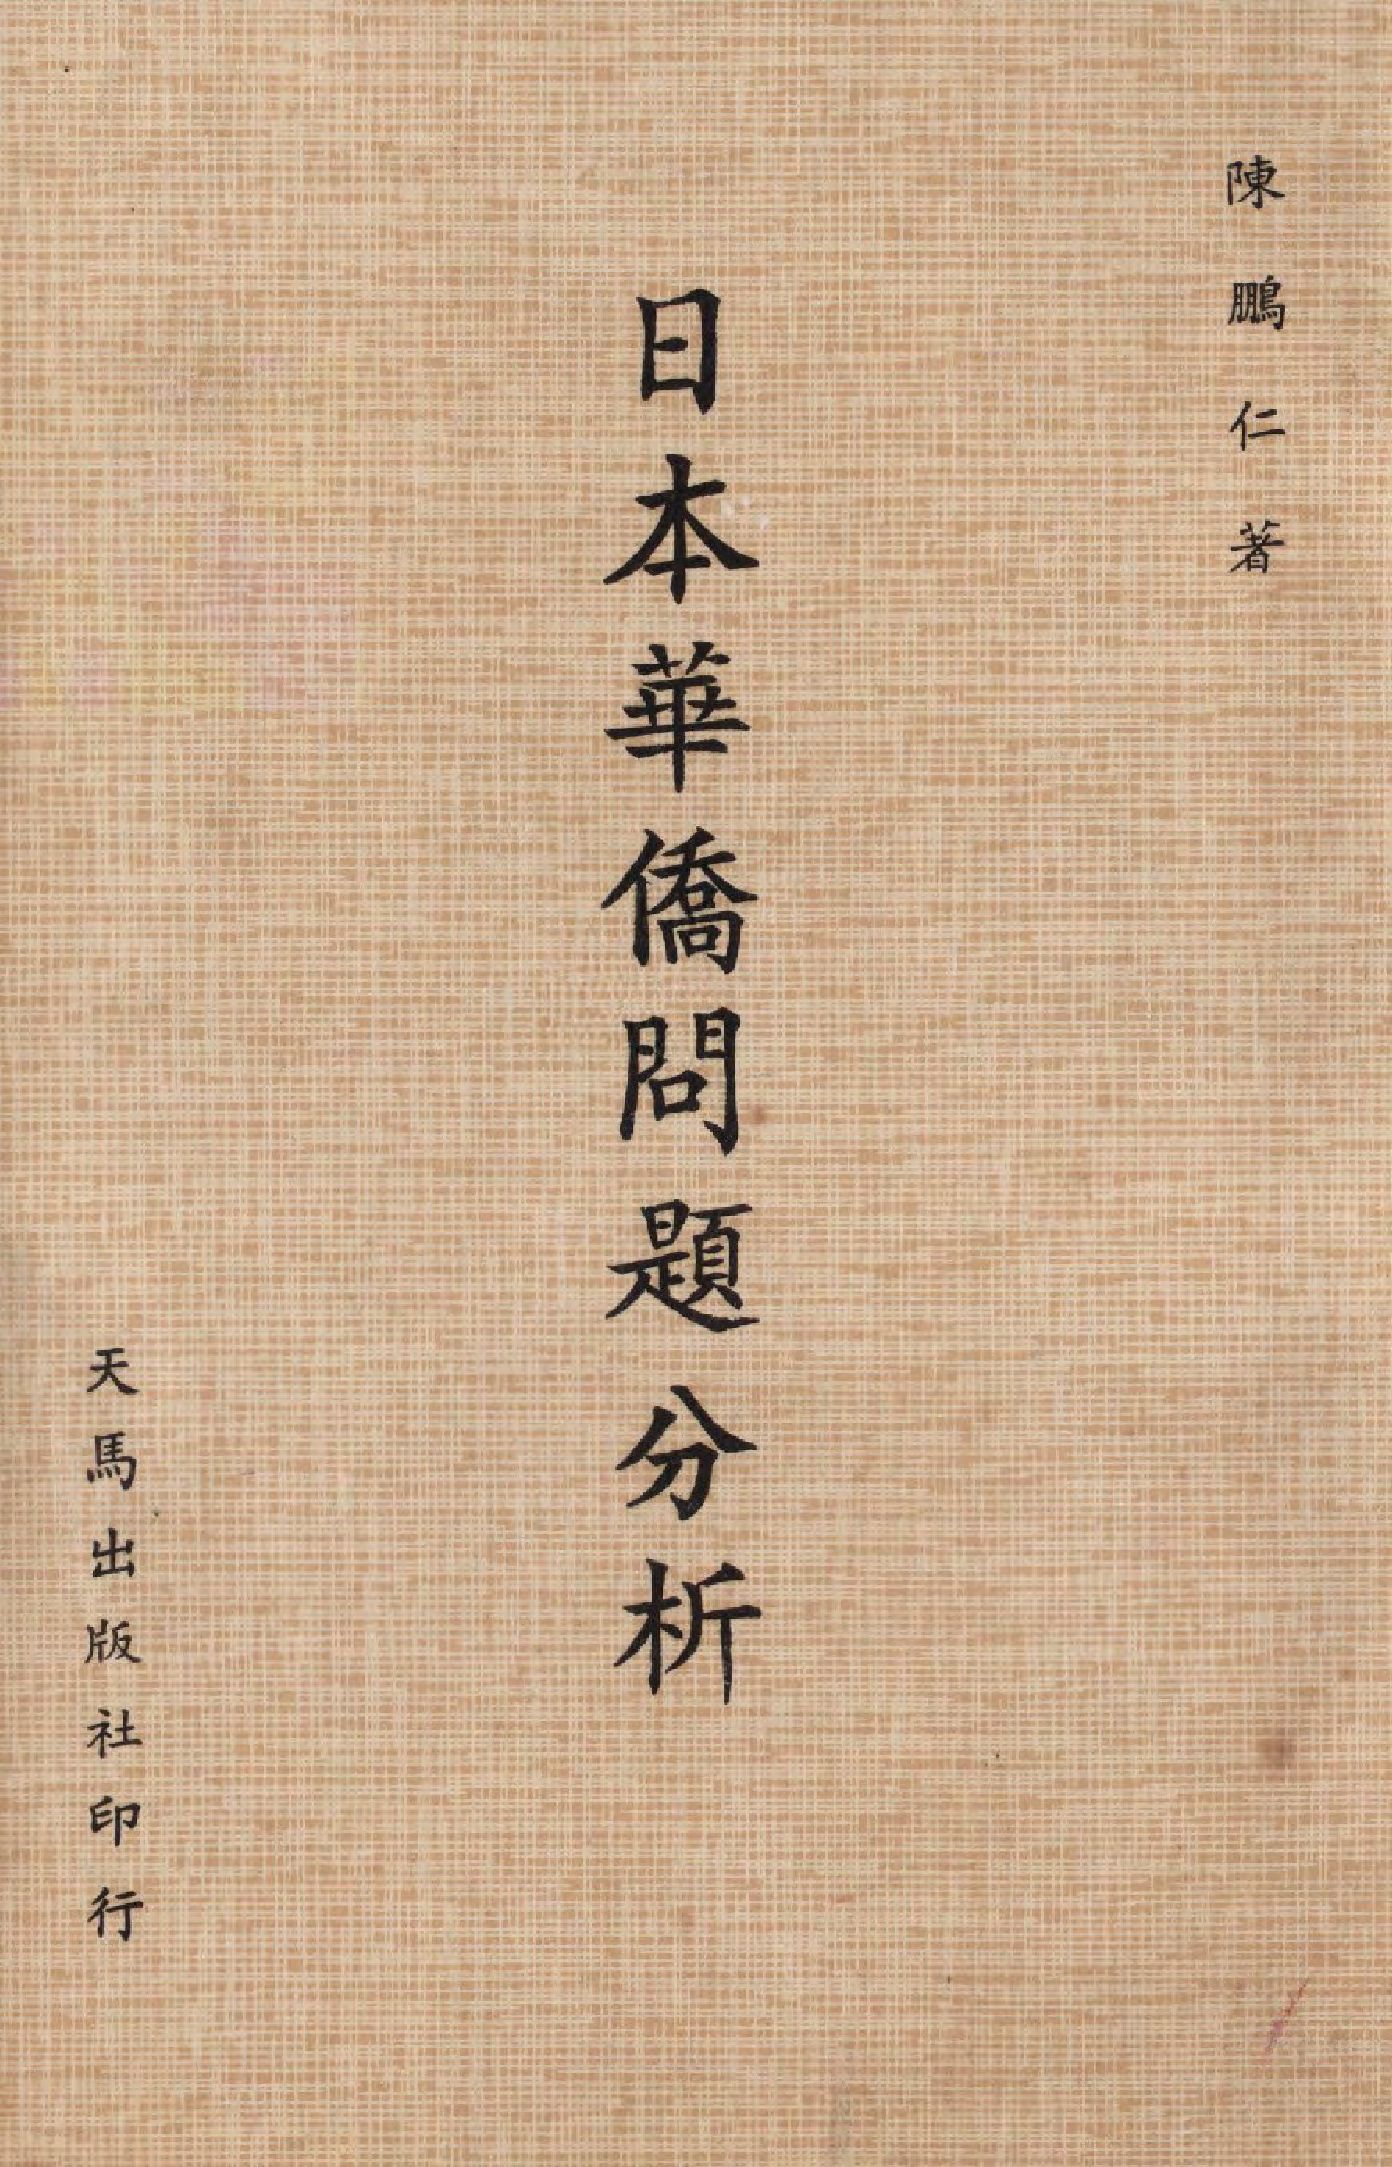 陳鵬仁著
日本華僑問題分析
天馬出版社印行